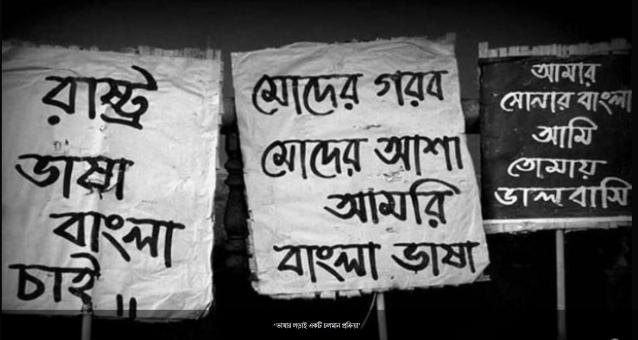 রাষ্ট্র
ভাষা
বাংলা
চাই॥
মোদের গরব
মোদের আশা
আমরি
বাংলা ভাষা
আমার
সোনার বাংলা
আমি
তোমায়
ভালবাসি
‘ভাষার লড়াই একটি চলমান প্রক্রিয়া’